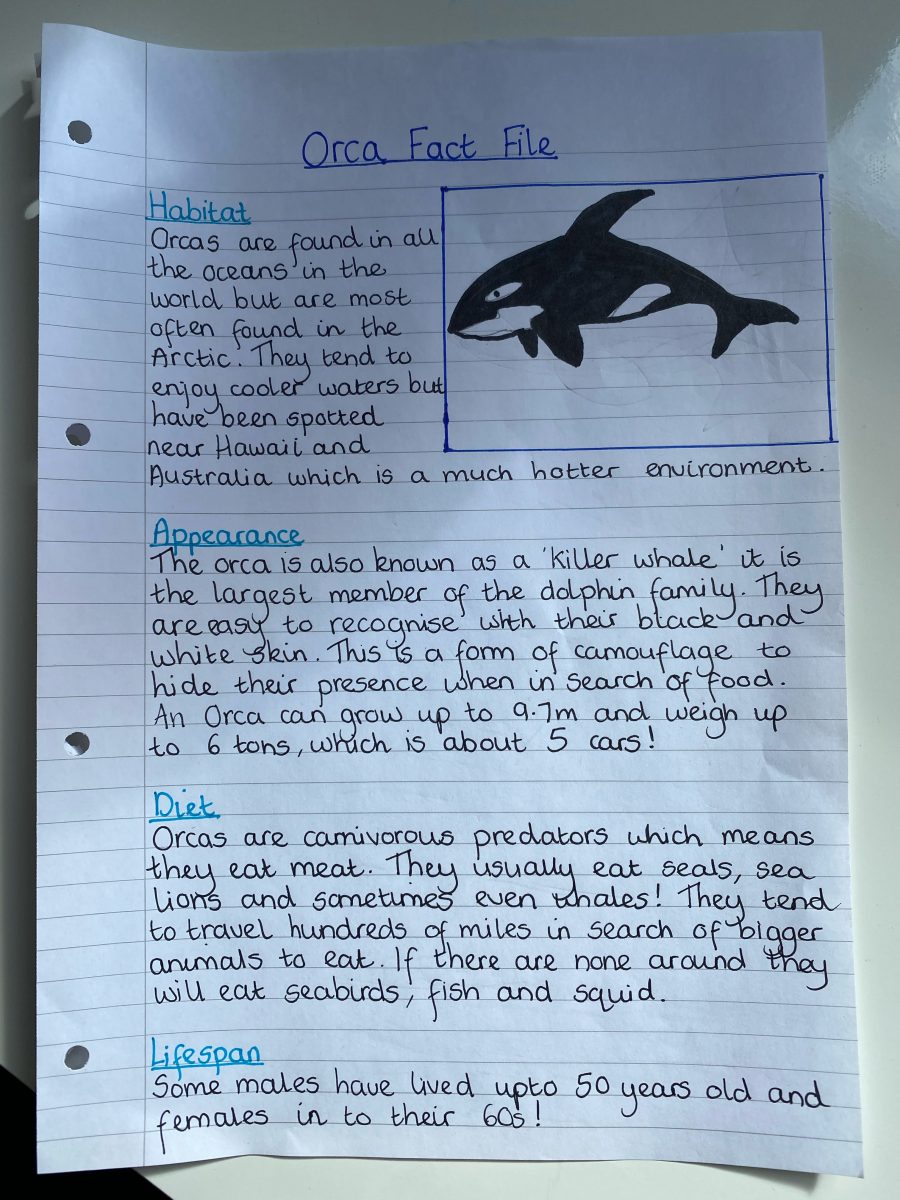 Orca Fact File
Habitat
Orcas are found in all
the oceans in the
world but are most
often found in the
Arctic. They tend to
enjoy cooler waters but
have been spotted
near Hawaii and
Australia which is a much hotter environment.
Appearance
The orca is also known as a 'killer whale' it is
the largest member of the dolphin family. They
are easy to recognise with their black and
white skin. This is a form of camouflage to
hide their presence when in search of food.
An Orca can grow up to 9.7m and weigh up
to 6 tons, which is about 5 cars!
Diet
Orcas are carnivorous predators which means
they eat meat. They usually eat seals, sea
lions and sometimes even whales! They tend
to travel hundreds of miles in search of bigger
animals to eat. If there are none around they
will eat seabirds, fish and squid.
Lifespan
Some males have lived upto 50 years old and
females in to their 60s!